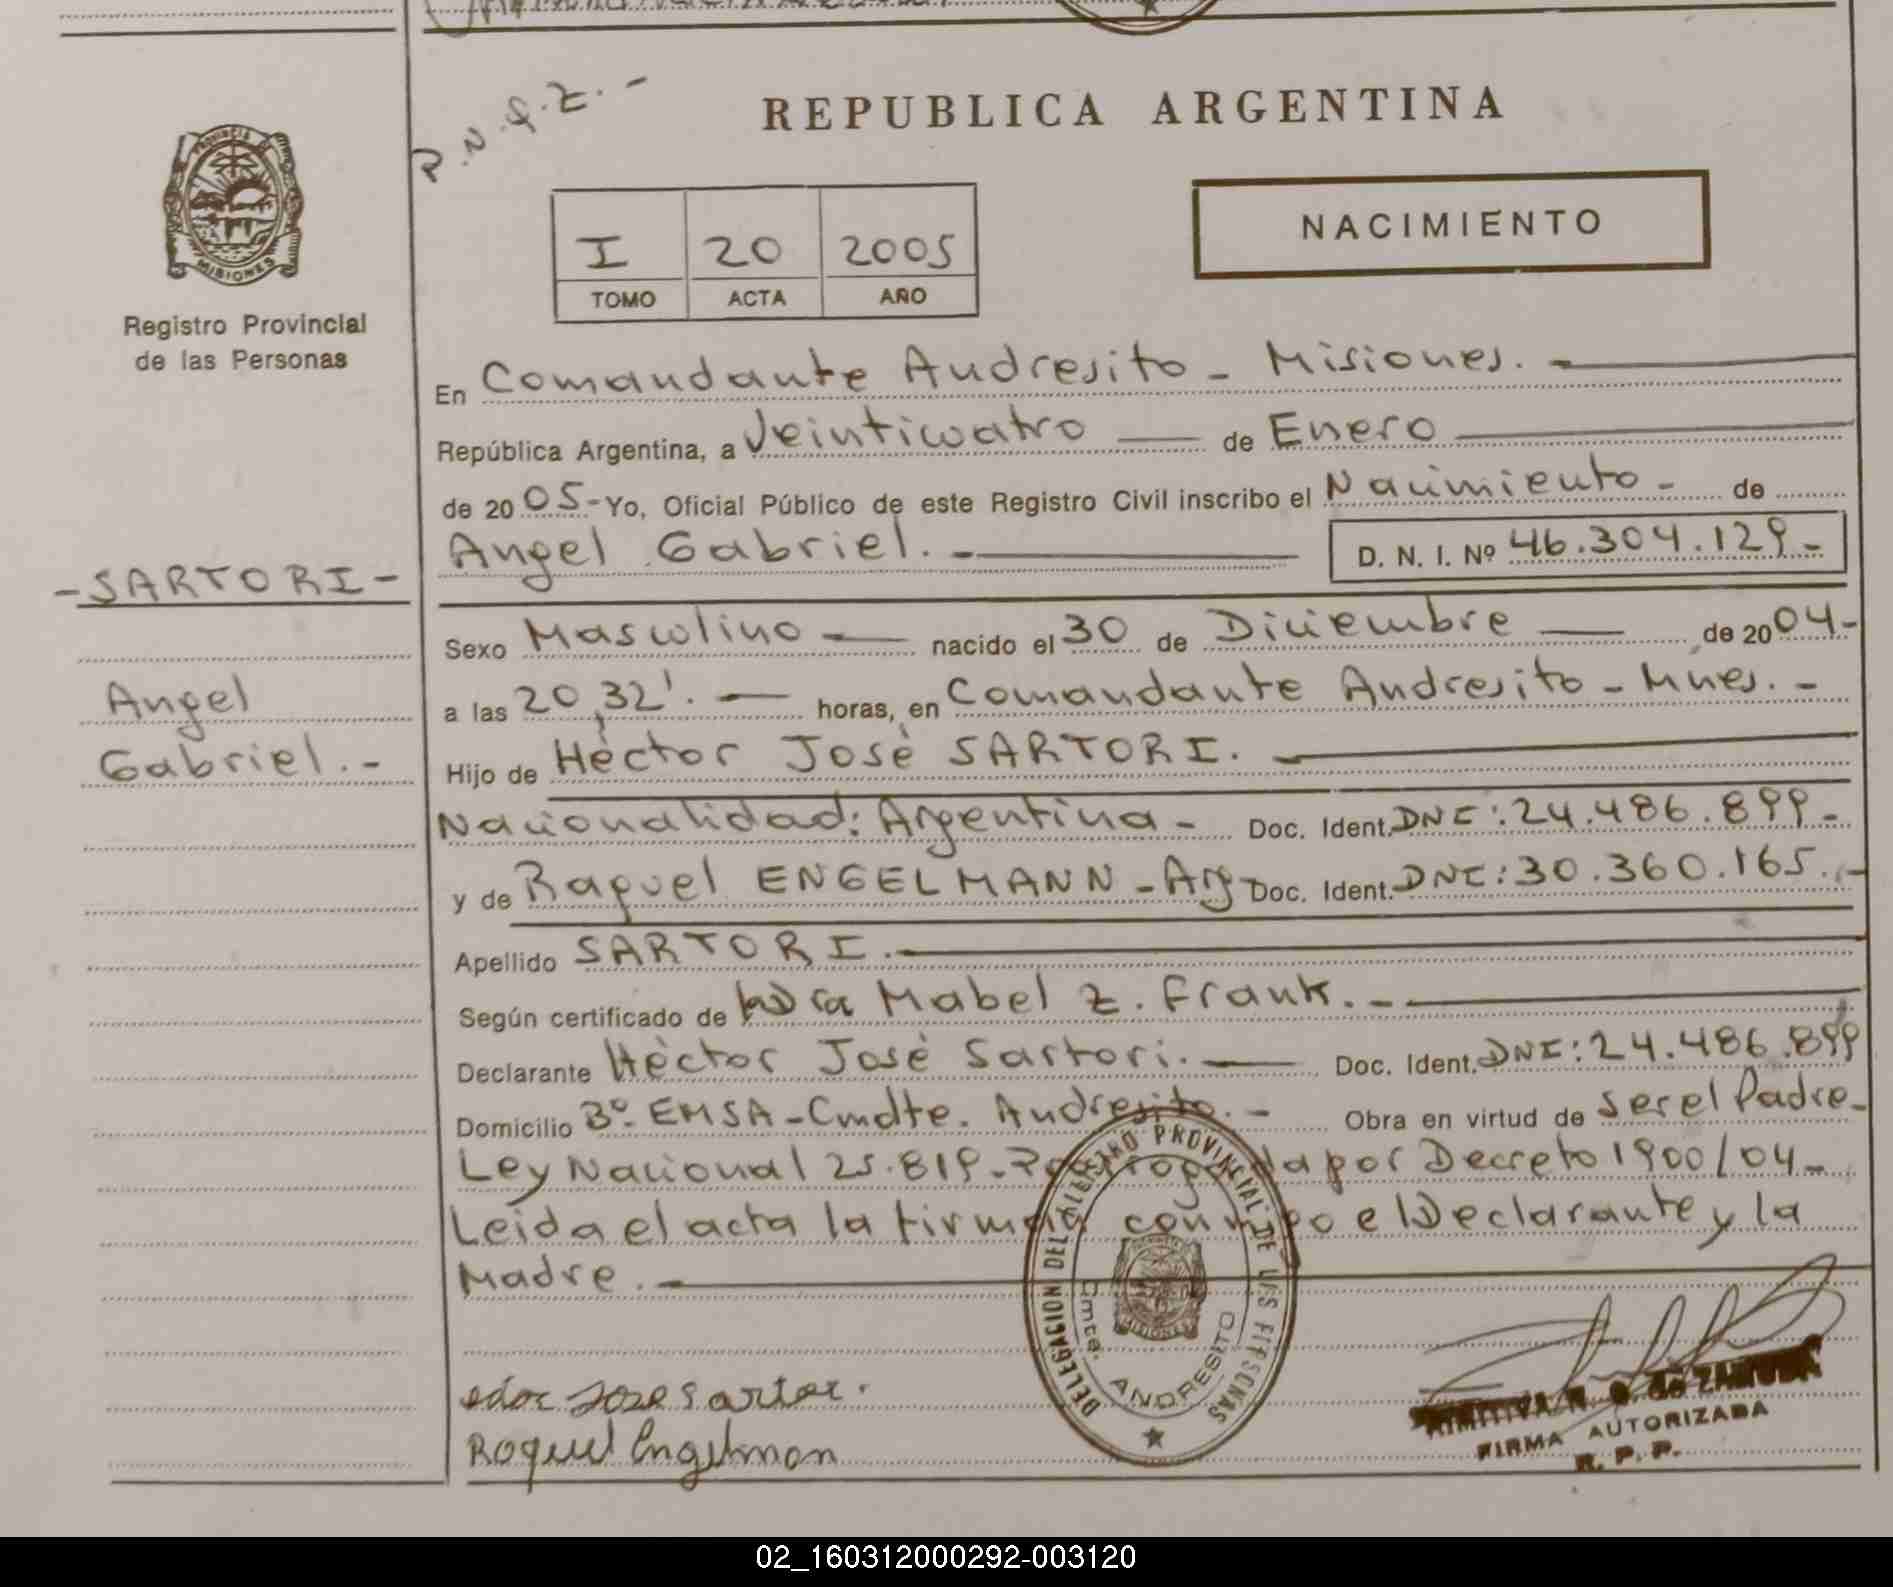 R.N.G.Z.-
REPUBLICA ARGENTINA
PROVINCIA
MISIONES
Registro Provincial
de las Personas
I 20 2005
TOMO ACTA AÑO
NACIMIENTO
En Comandante Andresito - Misiones. -
República Argentina, a Veinticuatro de Enero
de 2005- Yo, Oficial Público de este Registro Civil inscribo el Nacimiento - de
Angel Gabriel. - D. N. I. Nº 46.304.129-
- SARTORI -
Angel
Gabriel. -
Sexo Masculino nacido el 30 de Diciembre de 2004-
a las 20,32'. horas, en Comandante Andresito - Mnes. -
Hijo de Héctor José SARTORI.
Nacionalidad: Argentina - Doc. Ident. DNI: 24.486.899-
y de Raquel ENGELMANN - Arg- Doc. Ident. DNI: 30.360.165.-
Apellido SARTORI.
Según certificado de Dra Mabel Z. Frank. -
Declarante Héctor José Sartori. Doc. Ident. DNI: 24.486.899
Domicilio Bº EMSA - Cmdte. Andresito. - Obra en virtud de ser el Padre-
Ley Nacional 25.819- Prorrogada por Decreto 1900/04-
Leida el acta la firman conmigo el Declarante y la
Madre. -
DELEGACION DEL REGISTRO PROVINCIAL DE LAS PERSONAS
Cmte. ANDRESITO
MISIONES
Jose Sartor.
Roquel Engelmon
FIRMA AUTORIZADA
R. P. P.
02_160312000292-003120